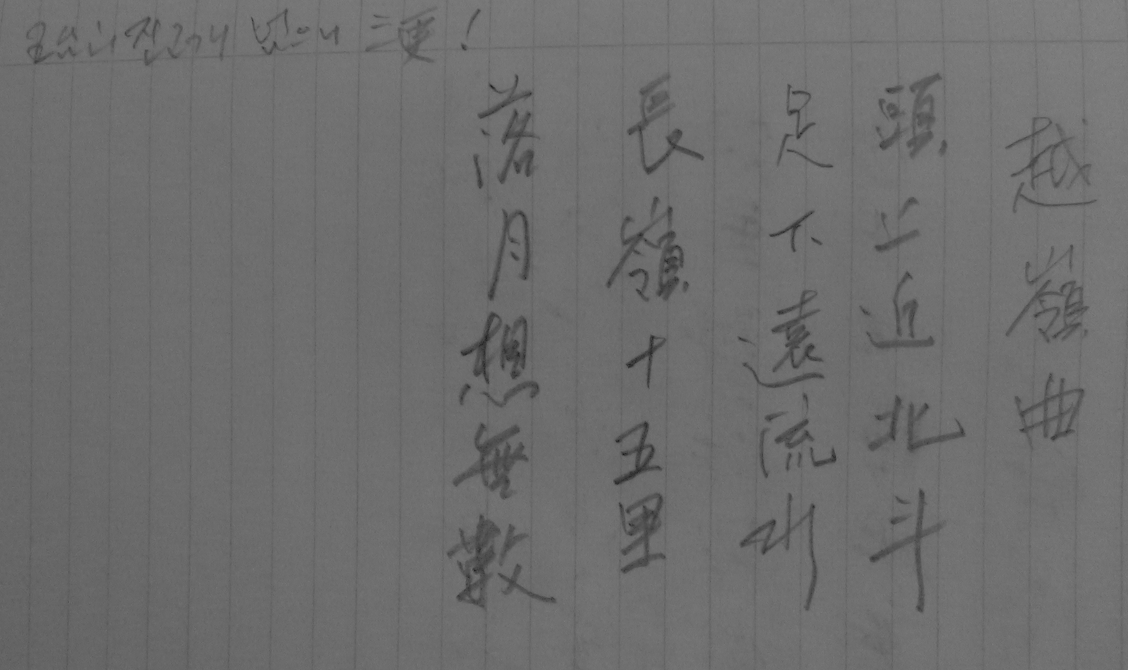 넘으니 三更!
越嶺曲
頭上近北斗
足下遠流水
長嶺十五里
落月想無數